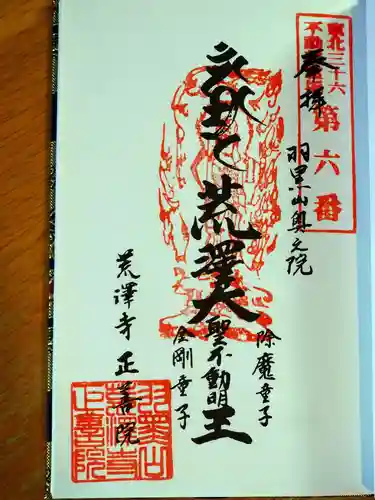 東北三十六
不動尊
第六番
奉拝
羽黒山奥之院
荒澤大聖不動明王
除魔童子
金剛童子
荒澤寺正善院
羽黒山
荒澤寺
正善院